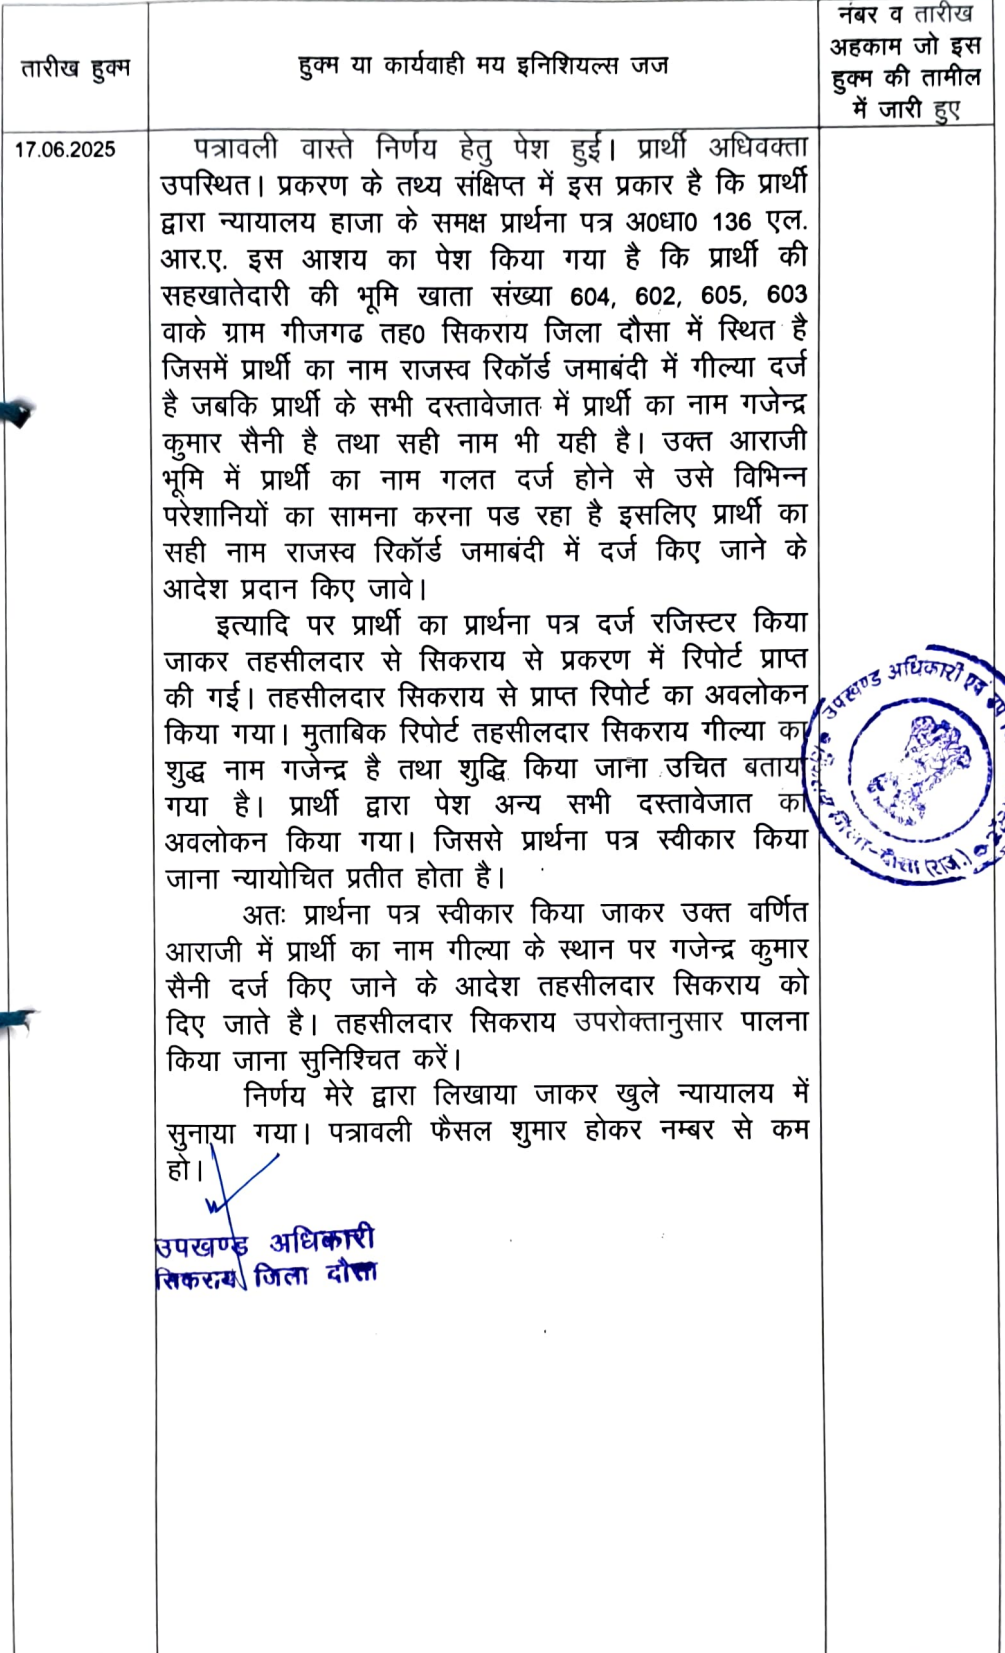 तारीख हुक्म
हुक्म या कार्यवाही मय इनिशियल्स जज
नंबर व तारीख
अहकाम जो इस
हुक्म की तामील
में जारी हुए
17.06.2025
पत्रावली वास्ते निर्णय हेतु पेश हुई। प्रार्थी अधिवक्ता
उपस्थित। प्रकरण के तथ्य संक्षिप्त में इस प्रकार है कि प्रार्थी
द्वारा न्यायालय हाजा के समक्ष प्रार्थना पत्र अ0धा0 136 एल.
आर.ए. इस आशय का पेश किया गया है कि प्रार्थी की
सहखातेदारी की भूमि खाता संख्या 604, 602, 605, 603
वाके ग्राम गीजगढ तह0 सिकराय जिला दौसा में स्थित है
जिसमें प्रार्थी का नाम राजस्व रिकॉर्ड जमाबंदी में गील्या दर्ज
है जबकि प्रार्थी के सभी दस्तावेजात में प्रार्थी का नाम गजेन्द्र
कुमार सैनी है तथा सही नाम भी यही है। उक्त आराजी
भूमि में प्रार्थी का नाम गलत दर्ज होने से उसे विभिन्न
परेशानियों का सामना करना पड रहा है इसलिए प्रार्थी का
सही नाम राजस्व रिकॉर्ड जमाबंदी में दर्ज किए जाने के
आदेश प्रदान किए जावे।
इत्यादि पर प्रार्थी का प्रार्थना पत्र दर्ज रजिस्टर किया
जाकर तहसीलदार से सिकराय से प्रकरण में रिपोर्ट प्राप्त
की गई। तहसीलदार सिकराय से प्राप्त रिपोर्ट का अवलोकन
किया गया। मुताबिक रिपोर्ट तहसीलदार सिकराय गील्या का
शुद्ध नाम गजेन्द्र है तथा शुद्धि किया जाना उचित बताया
गया है। प्रार्थी द्वारा पेश अन्य सभी दस्तावेजात का
अवलोकन किया गया। जिससे प्रार्थना पत्र स्वीकार किया
जाना न्यायोचित प्रतीत होता है।
अतः प्रार्थना पत्र स्वीकार किया जाकर उक्त वर्णित
आराजी में प्रार्थी का नाम गील्या के स्थान पर गजेन्द्र कुमार
सैनी दर्ज किए जाने के आदेश तहसीलदार सिकराय को
दिए जाते है। तहसीलदार सिकराय उपरोक्तानुसार पालना
किया जाना सुनिश्चित करें।
निर्णय मेरे द्वारा लिखाया जाकर खुले न्यायालय में
सुनाया गया। पत्रावली फैसल शुमार होकर नम्बर से कम
हो।
उपखण्ड अधिकारी
सिकराय जिला दौसा
उपखण्ड अधिकारी एवं
जिला-दौसा (राज.)